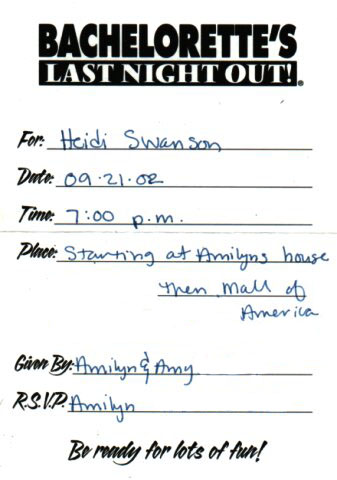 BACHELORETTE'S
LAST NIGHT OUT!®
For: Heidi Swanson
Date: 09.21.02
Time: 7:00 p.m.
Place: Starting at Amilyns house
then Mall of
America
Given By: Amilyn & Amy
R.S.V.P. Amilyn
Be ready for lots of fun!